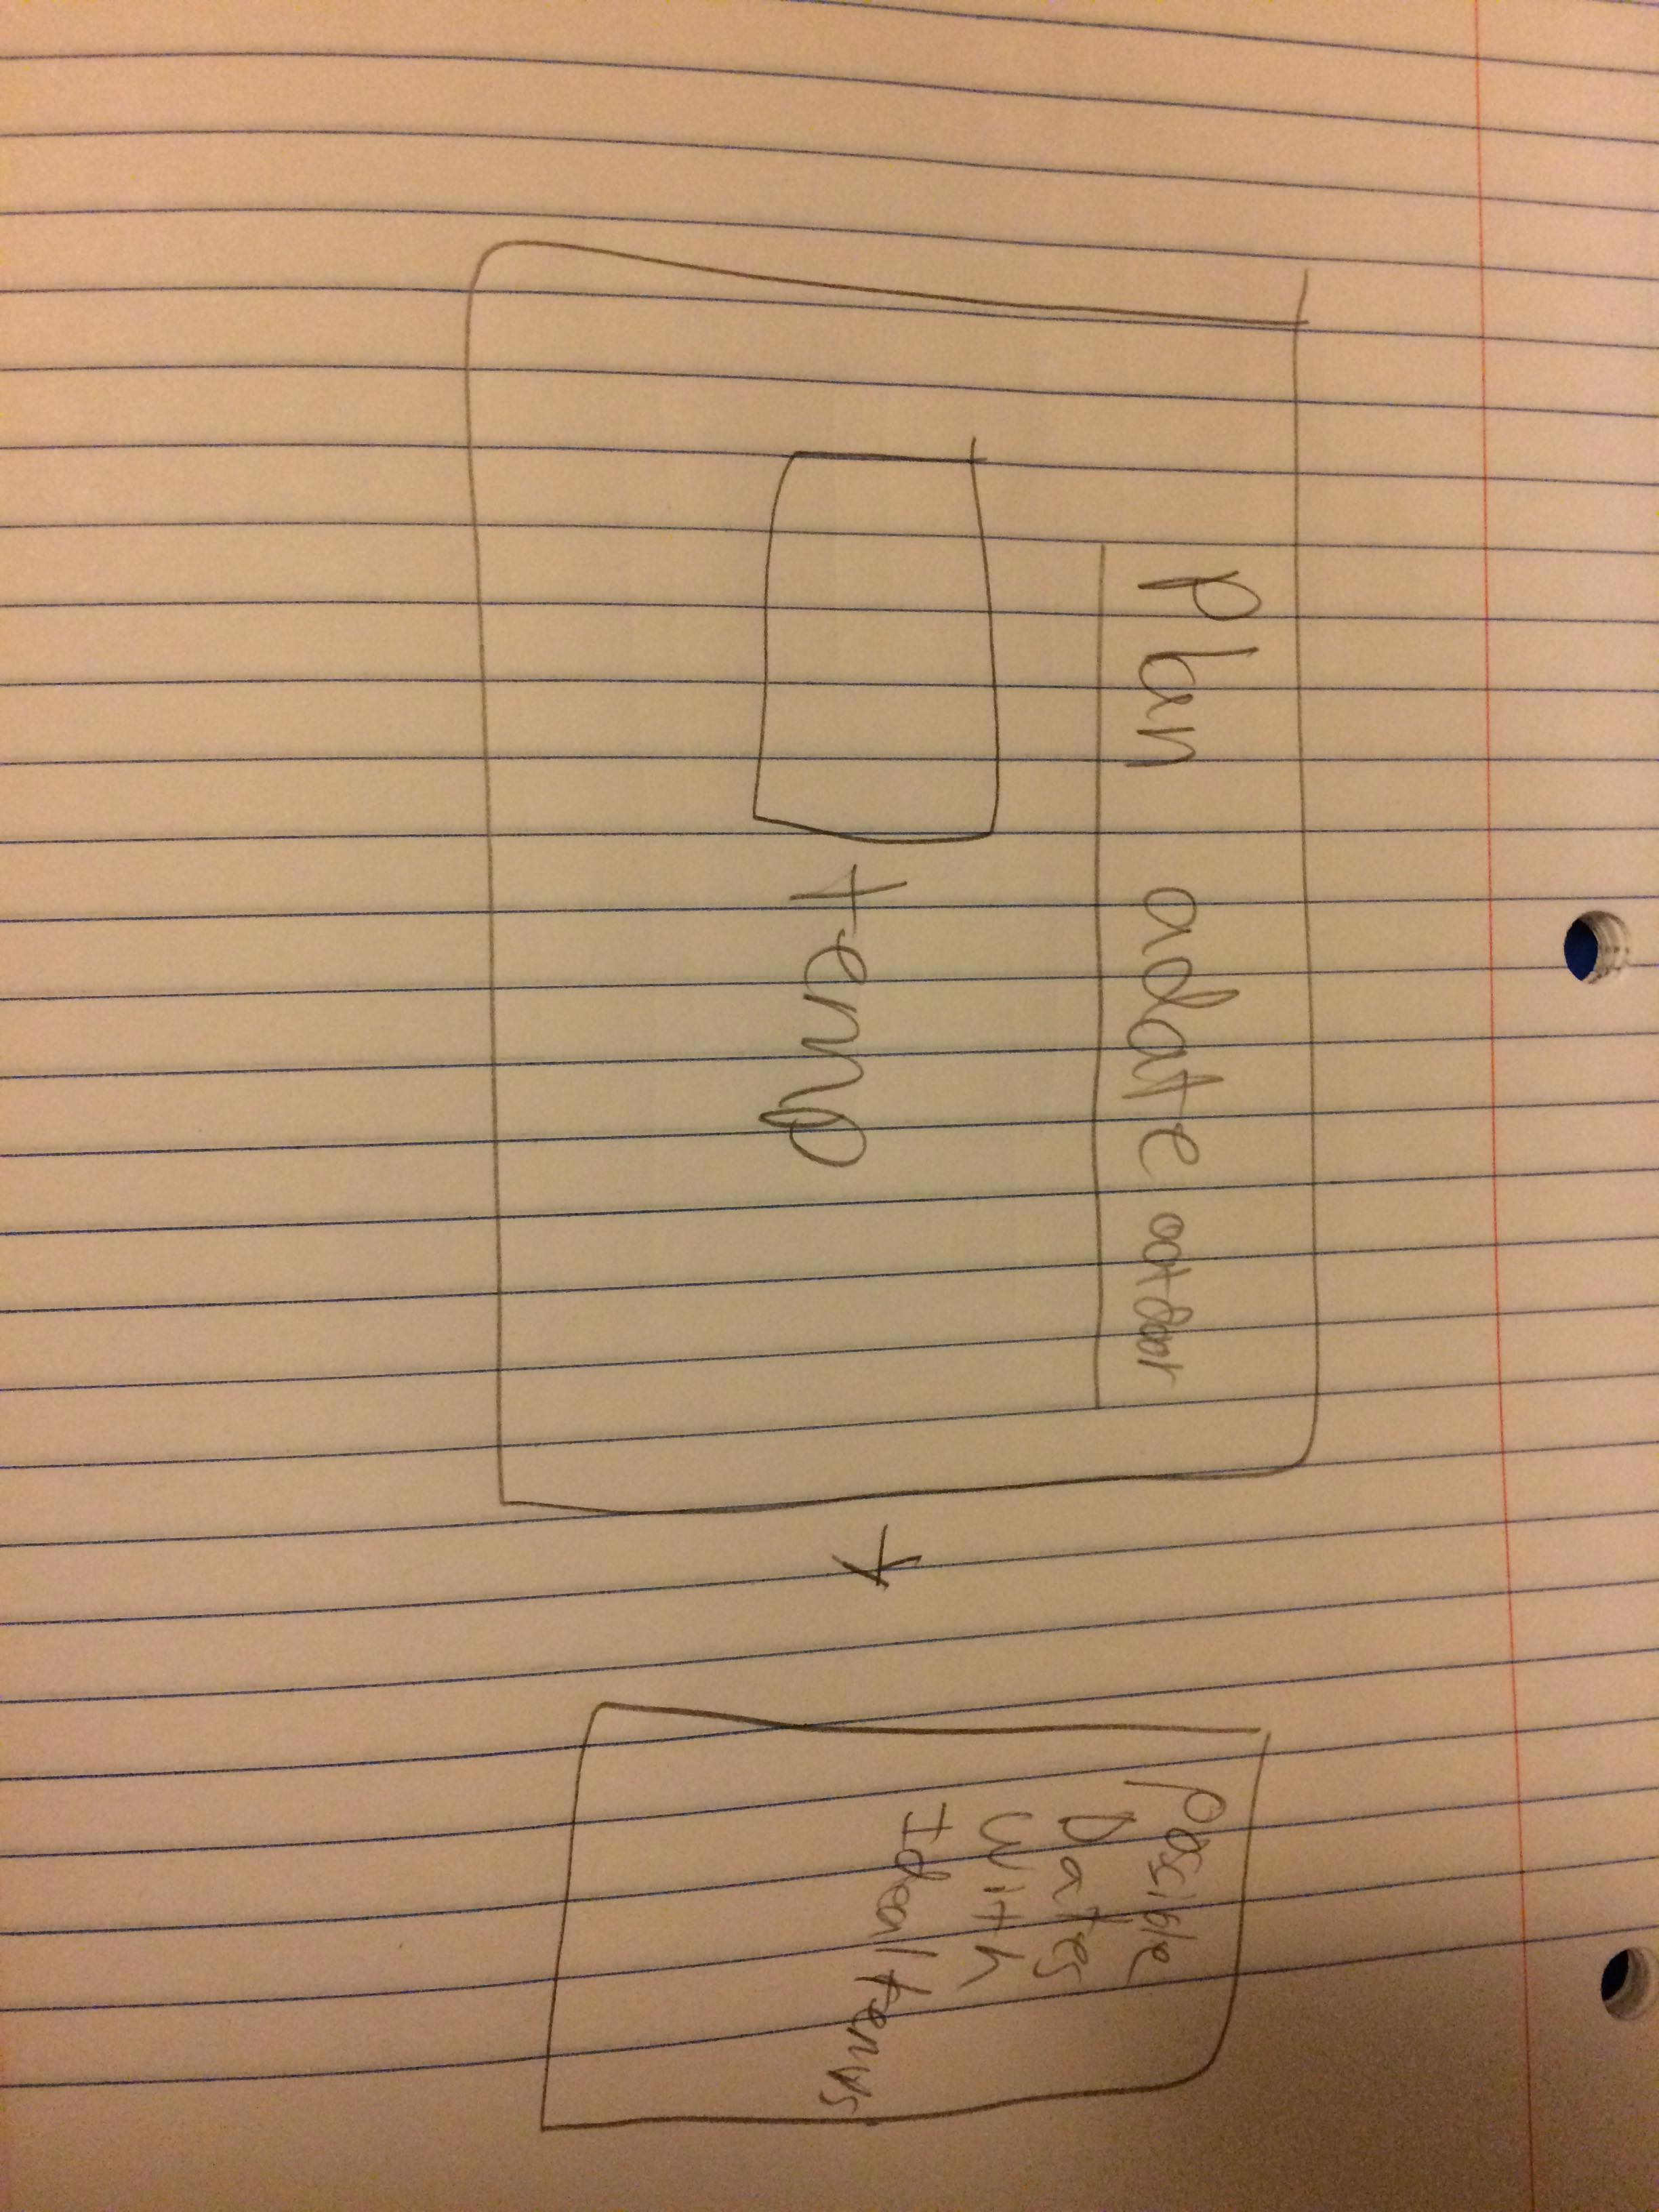 Plan a date outdoor
temp
possible
Dates
with
Ideal temps.